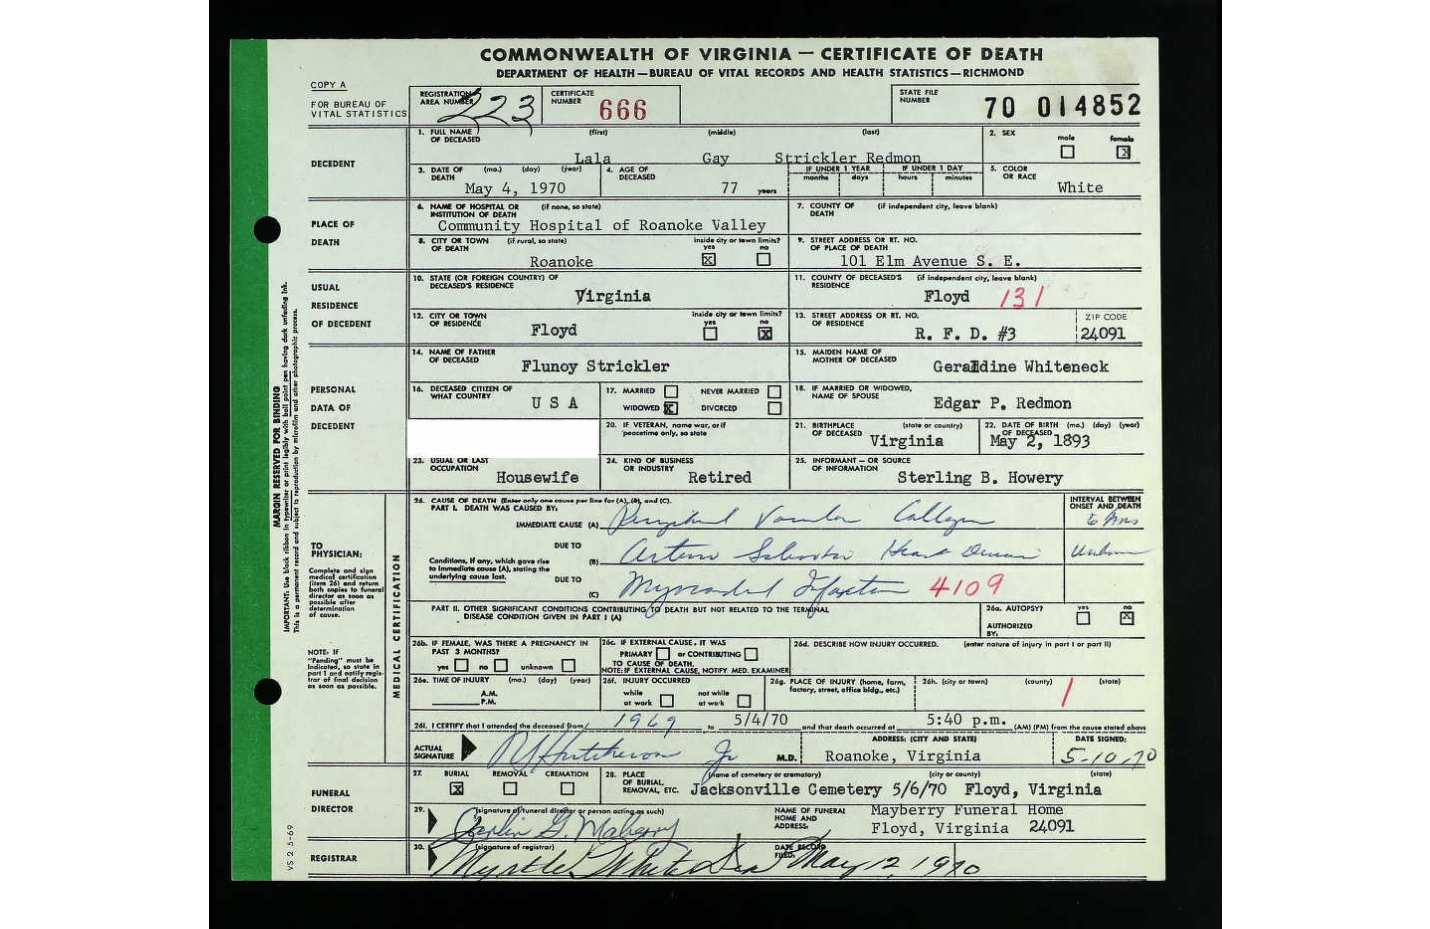 COMMONWEALTH OF VIRGINIA — CERTIFICATE OF DEATH
DEPARTMENT OF HEALTH—BUREAU OF VITAL RECORDS AND HEALTH STATISTICS—RICHMOND
COPY A
FOR BUREAU OF VITAL STATISTICS
REGISTRATION AREA NUMBER 223
CERTIFICATE NUMBER 666
STATE FILE NUMBER 70 014852
DECEDENT
1. FULL NAME OF DECEASED (first) (middle) (last)
Lala Gay Strickler Redmon
2. SEX male female X
3. DATE OF DEATH (mo.) (day) (year)
May 4, 1970
4. AGE OF DECEASED 77 years
IF UNDER 1 YEAR months days
IF UNDER 1 DAY hours minutes
5. COLOR OR RACE White
PLACE OF DEATH
6. NAME OF HOSPITAL OR INSTITUTION OF DEATH (if none, so state)
Community Hospital of Roanoke Valley
7. COUNTY OF DEATH (if independent city, leave blank)
8. CITY OR TOWN OF DEATH (if rural, so state) Roanoke
inside city or town limits? yes X no
9. STREET ADDRESS OR RT. NO. OF PLACE OF DEATH
101 Elm Avenue S. E.
USUAL RESIDENCE OF DECEDENT
10. STATE (OR FOREIGN COUNTRY) OF DECEASED'S RESIDENCE
Virginia
11. COUNTY OF DECEASED'S RESIDENCE (if independent city, leave blank)
Floyd 131
12. CITY OR TOWN OF RESIDENCE Floyd
inside city or town limits? yes no X
13. STREET ADDRESS OR RT. NO. OF RESIDENCE
R. F. D. #3
ZIP CODE 24091
PERSONAL DATA OF DECEDENT
14. NAME OF FATHER OF DECEASED
Flunoy Strickler
15. MAIDEN NAME OF MOTHER OF DECEASED
Geraldine Whiteneck
16. DECEASED CITIZEN OF WHAT COUNTRY U S A
17. MARRIED NEVER MARRIED
WIDOWED X DIVORCED
18. IF MARRIED OR WIDOWED, NAME OF SPOUSE
Edgar P. Redmon
20. IF VETERAN, name war, or if peacetime only, so state
21. BIRTHPLACE OF DECEASED (state or country)
Virginia
22. DATE OF BIRTH OF DECEASED (mo.) (day) (year)
May 2, 1893
23. USUAL OR LAST OCCUPATION Housewife
24. KIND OF BUSINESS OR INDUSTRY Retired
25. INFORMANT—OR SOURCE OF INFORMATION
Sterling B. Howery
MARGIN RESERVED FOR BINDING
IMPORTANT: Use black ribbon in typewriter or print legibly with ball point pen having dark unfading ink.
This is a permanent record and subject to reproduction by microfilm and other photographic process.
VS 2 5-69
TO PHYSICIAN:
Complete and sign medical certification (item 26) and return both copies to funeral director as soon as possible after determination of cause.
NOTE: IF "Pending" must be indicated, so state in part 1 and notify registrar of final decision as soon as possible.
MEDICAL CERTIFICATION
26. CAUSE OF DEATH (Enter only one cause per line for (A), (B), and (C).
PART I. DEATH WAS CAUSED BY:
INTERVAL BETWEEN ONSET AND DEATH
IMMEDIATE CAUSE (A) Peripheral Vascular Collapse
Conditions, if any, which gave rise to immediate cause (A), stating the underlying cause last.
DUE TO (B) Heart Disease
DUE TO (C) Myocardial Infarction 4109
PART II. OTHER SIGNIFICANT CONDITIONS CONTRIBUTING TO DEATH BUT NOT RELATED TO THE TERMINAL DISEASE CONDITION GIVEN IN PART I (A)
26a. AUTOPSY? yes no X
AUTHORIZED BY:
26b. IF FEMALE, WAS THERE A PREGNANCY IN PAST 3 MONTHS?
yes no unknown
26c. IF EXTERNAL CAUSE, IT WAS
PRIMARY or CONTRIBUTING
TO CAUSE OF DEATH.
NOTE: IF EXTERNAL CAUSE, NOTIFY MED. EXAMINER
26d. DESCRIBE HOW INJURY OCCURRED. (enter nature of injury in part I or part II)
26e. TIME OF INJURY (mo.) (day) (year)
A.M.
P.M.
26f. INJURY OCCURRED
while at work not while at work
26g. PLACE OF INJURY (home, farm, factory, street, office bldg., etc.)
26h. (city or town) (county) (state)
26i. I CERTIFY that I attended the deceased from 1969 to 5/4/70 and that death occurred at 5:40 p.m. (AM) (PM) from the cause stated above
ACTUAL SIGNATURE Jr M.D.
ADDRESS: (CITY AND STATE)
Roanoke, Virginia
DATE SIGNED:
5-10-70
FUNERAL DIRECTOR
27. BURIAL X REMOVAL CREMATION
28. PLACE OF BURIAL, REMOVAL, ETC. (name of cemetery or crematory) (city or county) (state)
Jacksonville Cemetery 5/6/70 Floyd, Virginia
29. (signature of funeral director or person acting as such)
NAME OF FUNERAL HOME AND ADDRESS:
Mayberry Funeral Home
Floyd, Virginia 24091
REGISTRAR
30. (signature of registrar)
Myrtle
DATE RECORD FILED: May 12, 1970